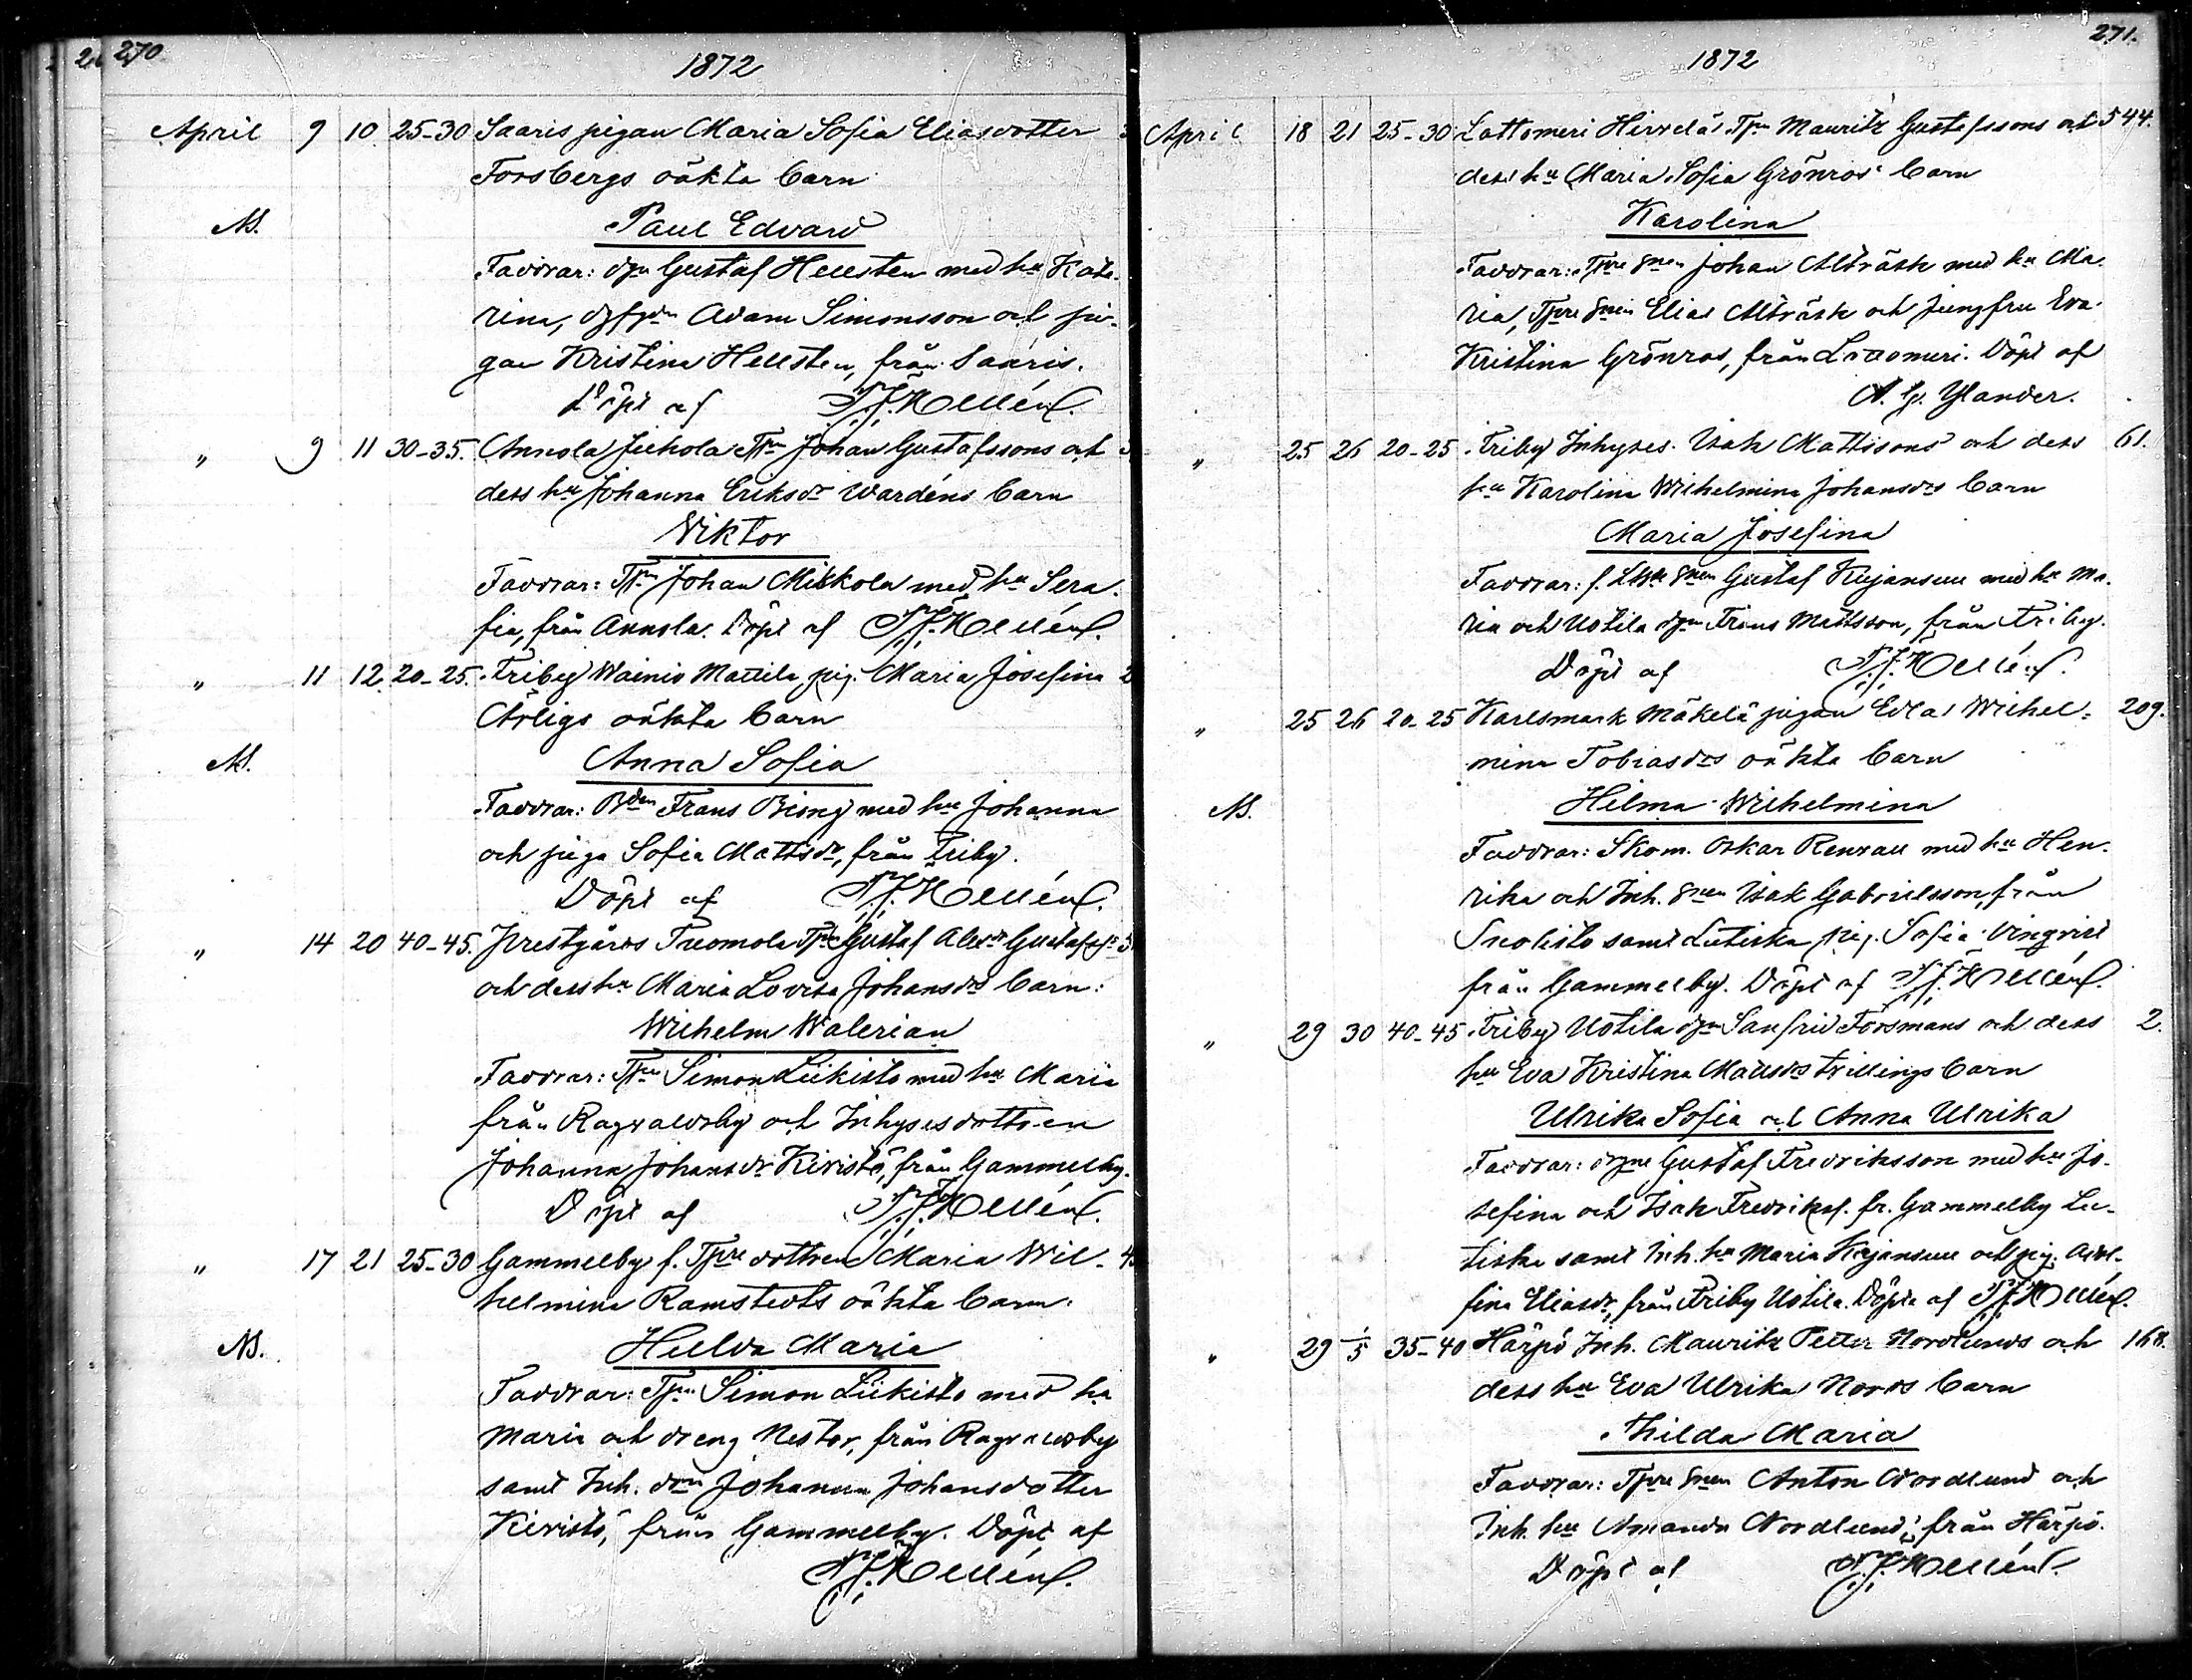 270
1872
April 9 10 25-30 Saaris pigan Maria Sofia Eliasdotter
Forsbergs oäkta barn
NB. Paul Edvard
Faddrar: Gustaf Hellsten med hu Kata-
rina, Adam Simonsson och pi-
gan Kristina Hellsten, från Saaris.
Döpt af Hellén.
" 9 11 30-35. Annola Johan Gustafssons och
dess hu Johanna Eriksdr Wardéns barn
Viktor
Faddrar: Johan Mikkola med hu Sera-
fia, från Annola. Döpt af Hellén.
" 11 12 20-25. Friby Wainio Mattila pig. Maria Josefina
Ärligs oäkta barn
NB. Anna Sofia
Faddrar: Frans med hu Johanna
och piga Sofia Mattsdr, från Friby.
Döpt af Hellén.
" 14 20 40-45. Prestgårds Tuomola Gustaf Alexdr Gustafss
och dess hu Maria Lovisa Johansdrs barn:
Wilhelm Walerian
Faddrar: Simon Liikisto med hu Maria
från Ragvaldsby och Inhysesdottren
Johanna Johansdr Kivistö, från Gammelby.
Döpt af Hellén.
" 17 21 25-30 Gammelby f. dottren Maria Wil-
helmina Ramstedts oäkta barn.
NB. Hulda Maria
Faddrar: Simon Liikisto med hu
Maria och dreng Nestor, från Ragvaldsby
samt Inh. Johanna Johansdotter
Kivistö, från Gammelby. Döpt af
Hellén.
271.
1872
April 18 21 25-30 Lattomeri Hirvelä Mauritz Gustafssons och 544.
dess hu Maria Sofia Grönros barn
Karolina
Faddrar: Johan Alträsk med hu Ma-
ria, Elias Alträsk och Jungfru Eva
Kristina Grönros, från Lattomeri. Döpt af
Ylander.
" 25 26 20-25 Friby Inhyses. Isak Mattssons och dess 61.
hu Karolina Wilhelmina Johansdrs barn
Maria Josefina
Faddrar: f. Gustaf Kujansuu med hu Ma-
ria och Uotila Frans Mattsson, från Friby.
Döpt af Hellén.
" 25 26 20-25 Karlsmark Mäkelä pigan Edla Wilhel- 209.
mina Tobiasdrs oäkta barn
NB. Hilma Wilhelmina
Faddrar: Skom. Oskar Renvall med hu Hen-
rika och Inh. Isak Gabrielsson från
Suolisto samt pig. Sofia Vingrist
från Gammelby. Döpt af Hellén.
" 29 30 40-45 Friby Uotila Sanfrid Forsmans och dess 2.
hu Eva Kristina Mattsdrs tvillings barn
Ulrika Sofia och Anna Ulrika
Faddrar: Gustaf Fredriksson med hu Jo-
sefina och Isak Fredrikss. fr. Gammelby Lu-
tiska samt Inh. hu Maria Kujansuu och pig. Adol-
fina Eliasdr, från Friby Uotila. Döpta af Hellén.
" 29 1/5 35-40 Härpö Inh. Mauritz Petter Nordlunds och 168.
dess hu Eva Ulrika Nords barn
Hilda Maria
Faddrar: Anton Nordlund och
Inh. hu Amanda Nordlund, från Härpö.
Döpt af Hellén.